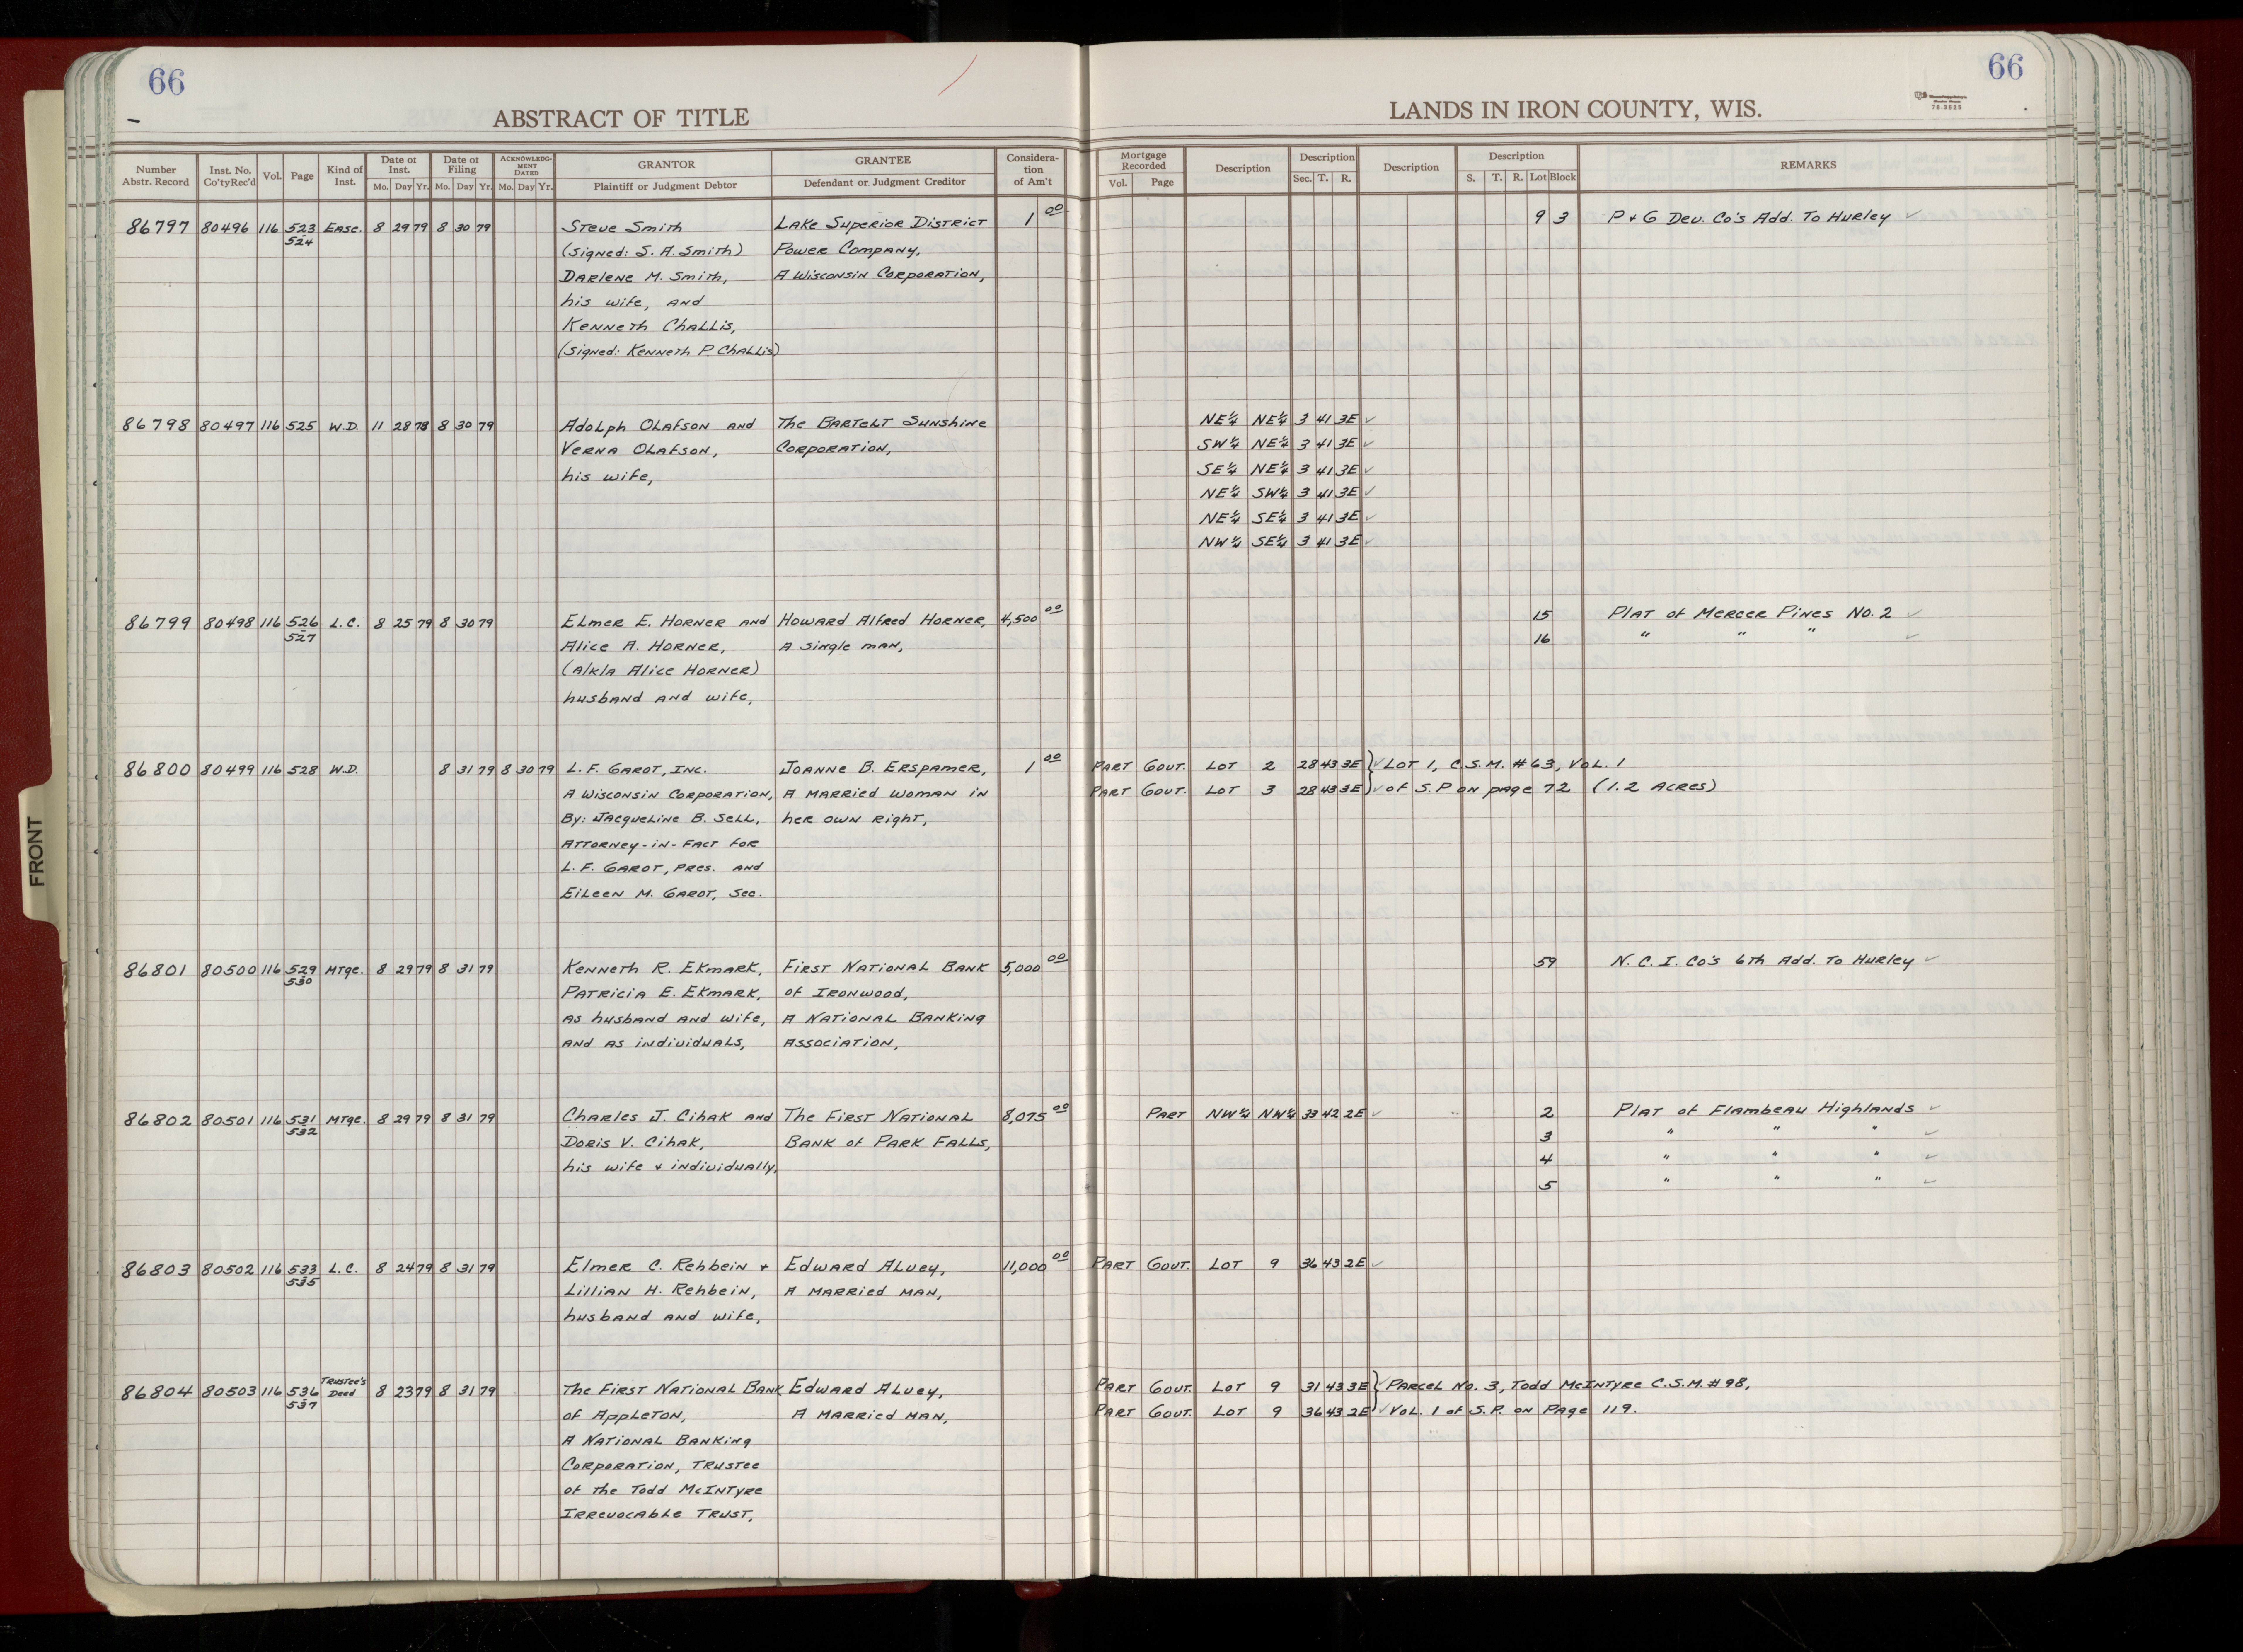 66
66
ABSTRACT OF TITLE
LANDS IN IRON COUNTY, WIS.
76-3525
Number Abstr. Record
Inst. No. Co'ty Rec'd
Vol.
Page
Kind of Inst.
Date of Inst.
Mo. Day Yr.
Date of Filing
Mo. Day Yr.
ACKNOWLEDGMENT DATED
Mo. Day Yr.
GRANTOR
Plaintiff or Judgment Debtor
GRANTEE
Defendant or Judgment Creditor
Consideration of Am't
Mortgage Recorded
Vol. Page
Description
Description
Sec. T. R.
Description
Description
S. T. R. Lot Block
REMARKS
86797 80496 116 523 Ease. 8 29 79 8 30 79 Steve Smith Lake Superior District 1 00 9 3 P & G Dev. Co's Add. To Hurley ✓
524 (signed: S. A. Smith) Power Company,
Darlene M. Smith, A Wisconsin Corporation,
his wife, and
Kenneth Challis,
(signed: Kenneth P. Challis)
86798 80497 116 525 W.D. 11 28 78 8 30 79 Adolph Olafson and The Bartelt Sunshine NE¼ NE¼ 3 41 3E ✓
Verna Olafson, Corporation, SW¼ NE¼ 3 41 3E ✓
his wife, SE¼ NE¼ 3 41 3E ✓
NE¼ SW¼ 3 41 3E ✓
NE¼ SE¼ 3 41 3E ✓
NW¼ SE¼ 3 41 3E ✓
86799 80498 116 526 L.C. 8 25 79 8 30 79 Elmer E. Horner and Howard Alfred Horner, 4,500 00 15 Plat of Mercer Pines No. 2 ✓
527 Alice A. Horner, A single man, 16 " " " ✓
(a/k/a Alice Horner)
husband and wife,
86800 80499 116 528 W.D. 8 31 79 8 30 79 L. F. Garot, Inc. Joanne B. Erspamer, 1 00 Part Govt. Lot 2 28 43 3E } ✓ Lot 1, C.S.M. #63, Vol. 1
A Wisconsin Corporation, A married woman in Part Govt. Lot 3 28 43 3E } ✓ of S.P on page 72 (1.2 Acres)
By: Jacqueline B. Sell, her own right,
Attorney-in-fact for
L. F. Garot, Pres. and
Eileen M. Garot, Sec.
86801 80500 116 529 Mtge. 8 29 79 8 31 79 Kenneth R. Ekmark, First National Bank 5,000 00 59 N. C. I. Co's 6th Add. To Hurley ✓
530 Patricia E. Ekmark, of Ironwood,
as husband and wife, A National Banking
and as individuals, Association,
86802 80501 116 531 Mtge. 8 29 79 8 31 79 Charles J. Cihak and The First National 8,075 00 Part NW¼ NW¼ 33 42 2E ✓ 2 Plat of Flambeau Highlands ✓
532 Doris V. Cihak, Bank of Park Falls, 3 " " " ✓
his wife & individually, 4 " " " ✓
5 " " " ✓
86803 80502 116 533 L.C. 8 24 79 8 31 79 Elmer C. Rehbein & Edward Alvey, 11,000 00 Part Govt. Lot 9 36 43 2E ✓
535 Lillian H. Rehbein, A married man,
husband and wife,
86804 80503 116 536 Trustee's Deed 8 23 79 8 31 79 The First National Bank Edward Alvey, Part Govt. Lot 9 31 43 3E } ✓ Parcel No. 3, Todd McIntyre C.S.M. #98,
537 of Appleton, A married man, Part Govt. Lot 9 36 43 2E } ✓ Vol. 1 of S.P. on Page 119.
A National Banking
Corporation, Trustee
of the Todd McIntyre
Irrevocable Trust,
FRONT